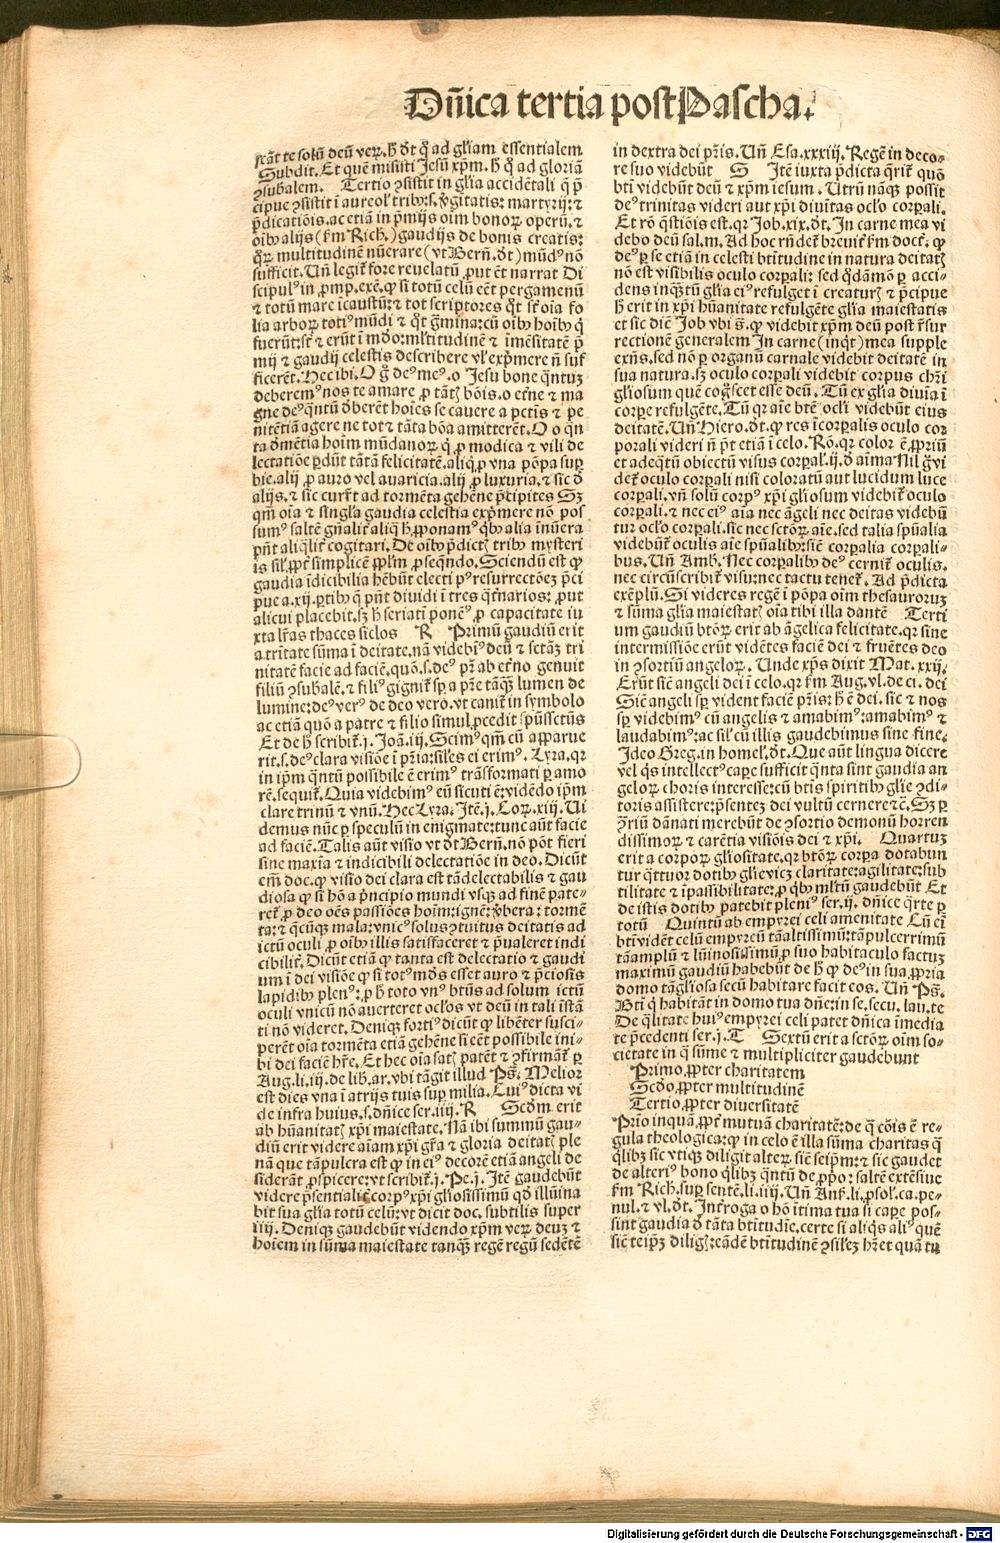 Dñica tertia post Pascha.
scãt te solũ deũ veꝝ. h̃ dt̃ ꝙ̃ ad gl̃iam essentialem
Subdit. Et quẽ misisti Jesũ xp̃m. h̃ ꝙ̃ ad gloriã
ꝯsubalem. Tertio ꝯsistit in gl̃ia accidẽtali q̃ p̃
cipue ꝯsistit ĩ aureol̃ tribꝰ: s. ṽgitatis: martyrij: ⁊
p̃dicatiõis. ac etiã in p̃mijs oĩm bonoꝝ operũ. ⁊
oĩbꝰ alijs (ẜm Rich.) gaudijs de bonis creatis:
q̃ꝝ multitudinẽ nũerare (vt Bern̄. dt̃) mũdꝰ nõ
sufficit. Uñ legit̃ fore reuelatũ ꝓut ẽt narrat Di
scipulꝰ in ꝓmp. exẽ. ꝙ si totũ celũ eẽt pergamenũ
⁊ totũ mare ĩcaustũ: ⁊ tot scriptores q̃t st̃ oĩa fo
lia arboꝝ totiꝰ mũdi ⁊ q̃t g̃mina: cũ oĩbꝰ hoĩbꝰ q̃
fuerũt: st̃ ⁊ erũt ĩ mdo: ml̃titudinẽ ⁊ ĩmẽsitatẽ p̃
mij ⁊ gaudij celestis describere vl̃ exp̃mere ñ suf
ficerẽt. Hec ibi. O g̃ deꝰ meꝰ. o Jesu bone q̃ntuꝫ
deberemꝰ nos te amare ꝓ tãtꝭ bõis. o et̃ne ⁊ ma
gne deꝰ q̃ntũ d̃berẽt hoĩes se cauere a pctĩs ⁊ pe
nitẽtiã agere ne tot ⁊ tãta bõa amitterẽt. O o qñ
ta dm̃entia hoĩm mũdanoꝝ q̃ ꝓ modica ⁊ vili de
lectatiõe ꝑdũt tãtã felicitatẽ. aliq̃ ꝓ vna põpa suꝑ
bie. alij ꝓ auro vel auaricia. alij ꝓ luxuria. ⁊ sic d̃
alijs. ⁊ sic curr̃t ad tormẽta gehẽne p̃cipites Sꝫ
qm̃ oĩa ⁊ singl̃a gaudia celestia exp̃mere nõ pos
sumꝰ saltẽ gñalit̃ aliq̃ h̃ ꝓponamꝰ q̃bꝰ alia ĩnũera
pñt aliq̃lit̃ cogitari. De oĩbꝰ p̃dictꝭ tribꝰ mysteri
is sil̃ ꝓpt̃ simplicẽ ppl̃m ꝓseq̃ndo. Sciendũ est ꝙ
gaudia ĩdicibilia hẽbũt electi pꝰ resurrectõeꝫ p̃ci
pue a. xij. ꝑtibꝰ q̃ pñt diuidi ĩ tres q̃t̃narios: ꝓut
alicui placebit. sꝫ h̃ seriatĩ ponẽꝰ ꝓ capacitate iu
xta lr̃as thaces sic̃los R Primũ gaudiũ erit
a tr̃itate sũma ĩ deitate. nã videbĩꝰ deũ ⁊ sctãꝫ tri
nitatẽ facie ad faciẽ. quõ. s. deꝰ pr̃ ab et̃no genuit
filiũ ꝯsubalẽ. ⁊ filiꝰ gignit̃ sp̃ a pr̃e tãꝗ̃ lumen de
lumine: deꝰ verꝰ de deo vero. vt canit̃ in symbolo
ac etiã quõ a patre ⁊ filio simul ꝓcedit spũssctũs
Et de h̃ scribit̃. j. Joã. iij. Scimꝰ qm̃ cũ apparue
rit. s. deꝰ clara visiõe ĩ pr̃ia: siles ei erimꝰ. Lyra. qr
in ip̃m q̃ntũ possibile ẽ erimꝰ trãsformati ꝑ amo
rẽ. seq̃uit̃. Quia videbimꝰ eũ sicuti ẽ: vidẽdo ip̃m
clare trinũ ⁊ vnũ. Hec Lyra. Jtẽ. j. Coꝝ. xiij. Ui
demus nũc ꝑ speculũ in enigmate: tunc aũt facie
ad faciẽ. Talis aũt visio vt dt̃ Bern̄. nõ põt fieri
sine maxĩa ⁊ indicibili delectatiõe in deo. Dicũt
em̃ doc. ꝙ visio dei clara est tã delectabilis ⁊ gau
diosa ꝙ si hõ a p̃ncipio mundi vsqꝫ ad finẽ pate-
ret̃ ꝓ deo oẽs passiões hoĩm: ignẽ: ṽbera: tormẽ
ta: ⁊ q̃cũqꝫ mala: vnicꝰ solus ꝯtuitus deitatis ad
ictũ oculi ꝓ oĩbꝰ illis satisfaceret ⁊ p̃ualeret indi
cibilit̃. Dicũt etiã ꝙ tanta est delectatio ⁊ gaudi
um ĩ dei visiõe ꝙ si totꝰ mũdꝰ esset auro ⁊ p̃ciosis
lapidibꝰ plenꝰ: ꝓ h̃ toto vnꝰ btũs ad solum ictũ
oculi vnicũ nõ auerteret oc̃los vt deũ in tali ĩstã
ti nõ videret. Deniqꝫ fortiꝰ dicũt ꝙ libẽter susci-
perẽt oĩa tormẽta etiã gehẽne si eẽt possibile ini-
bi dei faciẽ hr̃e. Et hec oĩa satꝭ patẽt ⁊ ꝯfirmãt̃ ꝑ
Aug. li. iij. de lib. ar. vbi tãgit illud Ps̃. Melior
est dies vna ĩ atrijs tuis suꝑ milia. Cuiꝰ dicta vi
de infra huius. s. dñice ser. iij. R Scd̃m erit
ab hũanitatꝭ xp̃i maiestate. Nã ibi summũ gau-
diũ erit videre aĩam xp̃i gr̃a ⁊ gloria deitatꝭ ple
nã que tã pulcra est ꝙ in eiꝰ decorẽ etiã angeli de
siderãt ꝓspicere: vt scribit̃. j. Pe. j. Jtẽ gaudebũt
videre p̃sentialit̃ corpꝰ xp̃i gl̃iosissimũ qd̃ illũina
bit sua gl̃ia totũ celũ: vt dicit doc. subtilis super
iiij. Deniqꝫ gaudebũt videndo xp̃m veꝝ deuꝫ ⁊
hoĩem in sũma maiestate tanꝗ̃ regẽ regũ sedẽtẽ
in dextra dei pr̃is. Uñ Esa. xxxiij. Regẽ in deco-
re suo videbũt S Jtẽ iuxta p̃dicta q̃rit̃ quõ
bt̃i videbũt deũ ⁊ xp̃m iesum. Utrũ nãqꝫ possit
deꝰ trinitas videri aut xp̃i diuĩtas oc̃lo corꝑali.
Et rõ q̃stiõis est. qr Job. xix. dt̃. In carne mea vi
debo deũ sal. m. Ad hoc rñdet̃ breuit̃ ẜm doct̃. ꝙ
deꝰ ꝑ se etiã in celesti bt̃itudine in natura deitatꝭ
nõ est visibilis oculo corꝑali: sed q̃dãmõ ꝑ acci-
dens inq̃tũ gl̃ia eiꝰ refulget ĩ creaturꝭ ⁊ p̃cipue
h̃ erit in xp̃i hũanitate refulgẽte gl̃ia maiestatis
et sic diẽ Job vbi s̃. ꝙ videbit xp̃m deũ post r̃sur
rectionẽ generalem In carne (inq̃t) mea supple
exñs. sed nõ ꝑ organũ carnale videbit deitatẽ in
sua natura. sꝫ oculo corꝑali videbit corpus chr̃i
gl̃iosum quẽ cog̃scet esse deũ. Tũ ex gl̃ia diuĩa ĩ
corꝑe refulgẽte. Tũ qr aĩe btẽ oc̃li videbũt eius
deitatẽ. Uñ Hiero. dt̃. ꝙ res ĩcorꝑalis oculo cor
porali videri ñ pt̃ etiã ĩ celo. Rõ. qr color ẽ ꝓpriũ
et adeq̃tũ obiectũ visus corꝑal̃. ij. d̃ aĩma Nil g̃ vi
det̃ oculo corꝑali nisi coloratũ aut lucidum luce
corꝑali. vñ solũ corpꝰ xp̃i gl̃iosum videbit̃ oculo
corꝑali. ⁊ nec eiꝰ aĩa nec ãgeli nec deitas videbũ
tur oc̃lo corꝑali. sic nec sctõꝝ aĩe. sed talia spũalia
videbũt̃ oculis aĩe spũalibꝰ: sicẽ corꝑalia corꝑali-
bus. Uñ Amb. Nec corꝑalibꝰ deꝰ cernit̃ oculis.
nec circũscribit̃ visu: nec tactu tenet̃. Ad p̃dicta
exẽplũ. Si videres regẽ ĩ põpa oĩm thesauroruꝫ
⁊ sũma gl̃ia maiestatꝭ oĩa tibi illa dantẽ Terti
um gaudiũ btõꝝ erit ab ãgelica felicitate. qr sine
intermissiõe erũt vidẽtes faciẽ dei ⁊ fruẽtes deo
in ꝯsortiũ angeloꝝ. Unde xp̃s dixit Mat. xxij.
Erũt sicẽ angeli dei ĩ celo. qr ẜm Aug. vl. de ci. dei
Sicẽ angeli sp̃ vident faciẽ pr̃is: h̃ ẽ dei. sic ⁊ nos
sp̃ videbimꝰ cũ angelis ⁊ amabimꝰ: amabimꝰ ⁊
laudabimꝰ: ac sil̃ cũ illis gaudebimus sine fine.
Jdeo Greg. in homel̃. dt̃. Que aũt lingua dicere
vel q̃s intellectꝰ caꝑe sufficit q̃nta sint gaudia an
geloꝝ choris interesse: cũ btĩs spiritibꝰ gl̃ie ꝯdi-
toris assistere: p̃senteꝫ dei vultũ cernere ⁊cẽ. Sꝫ ꝑ
ꝯr̃iũ dãnati merebũt̃ de ꝯsortio demonũ horren
dissimoꝝ ⁊ carẽtia visiõis dei ⁊ xp̃i. Quartuꝫ
erit a corpoꝝ gl̃iositate. qr btõꝝ corpa dotabun
tur q̃ttuor dotibꝰ gl̃ie viꝫ claritate: agilitate: sub
tilitate ⁊ ĩpassibilitate: ꝓ q̃bꝰ ml̃tũ gaudebũt Et
de istis dotibꝰ patebit pleniꝰ ser. ij. dñice q̃rte ꝑ
totũ Quintũ ab empyrei celi amenitate Cũ eĩ
bt̃i vidẽt celũ empyreũ tã altissimũ: tã pulcerrimũ
tã amplũ ⁊ lũinosissimũ ꝓ suo habitaculo factuꝫ
maximũ gaudiũ habebũt de h̃ ꝙ deꝰ in sua ꝓpria
domo tã gl̃iosa secũ habitare facit eos. Uñ Ps̃.
Bt̃i q̃ habitãt in domo tua dñe: in se. secu. lau. te
De q̃litate huiꝰ empyrei celi patet dñica ĩmedia
te p̃cedenti ser. j. T Sextũ erit a sctõꝝ oĩm so-
cietate in q̃ sũme ⁊ multipliciter gaudebunt
Primo ꝓpter charitatem
Scd̃o ꝓpter multitudinẽ
Tertio ꝓpter diuersitatẽ
Prĩo inquã ꝓpt̃ mutuã charitatẽ: de q̃ cõis ẽ re-
gula theologica: ꝙ in celo ẽ illa sũma charitas q̃
q̃libꝫ sic vtiqꝫ diligit alteꝝ siẽ seip̃m: ⁊ sic gaudet
de alteriꝰ bono q̃libꝫ q̃ntũ de ꝓpo: saltẽ extẽsiue
ẜm Rich. suꝑ sentẽ. li. iiij. Uñ Ans̃. li. ꝓsol̃. ca. pe-
nul. ⁊ vl. dt̃. Int̃roga o hõ ĩtima tua si caꝑe pos-
sint gaudia d̃ tãta bt̃itudĩe. certe si aliq̃s aliꝰ quẽ
siẽ teip̃ꝫ diligꝭ: eãdẽ bt̃itudinẽ ꝯsileꝫ hr̃et quã tu
Digitalisierung gefördert durch die Deutsche Forschungsgemeinschaft - DFG